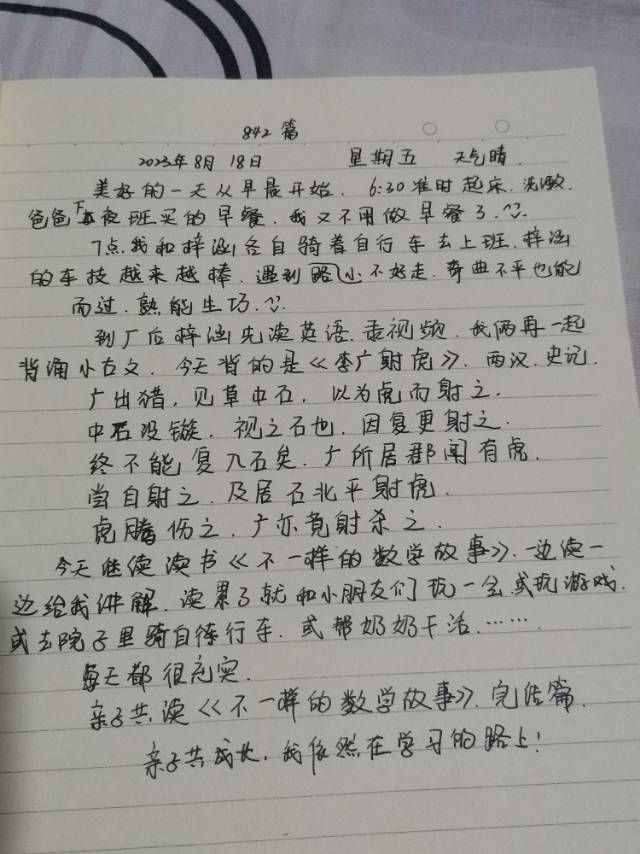 842篇
2023年8月18日 星期五 天气晴.
美好的一天从早晨开始. 6:30准时起床.洗漱.
爸爸下夜班买的早餐.我又不用做早餐了.
7点.我和梓涵各自骑着自行车去上班.梓涵
的车技越来越棒.遇到路小不好走.弯曲不平也能
而过.熟能生巧.
到厂后梓涵先读英语.录视频.我俩再一起
背诵小古文.今天背的是《李广射虎》.西汉.史记.
广出猎,见草中石,以为虎而射之.
中石没镞,视之石也.因复更射之.
终不能复入石矣.广所居郡闻有虎.
尝自射之.及居右北平射虎.
虎腾伤之.广亦竟射杀之.
今天继续读书《不一样的数学故事》.一边读一
边给我讲解.读累了就和小朋友们玩一会.或玩游戏.
或去院子里骑自行车.或帮奶奶干活.……
每天都很充实.
亲子共读《不一样的数学故事》.完结篇.
亲子共成长,我依然在学习的路上!